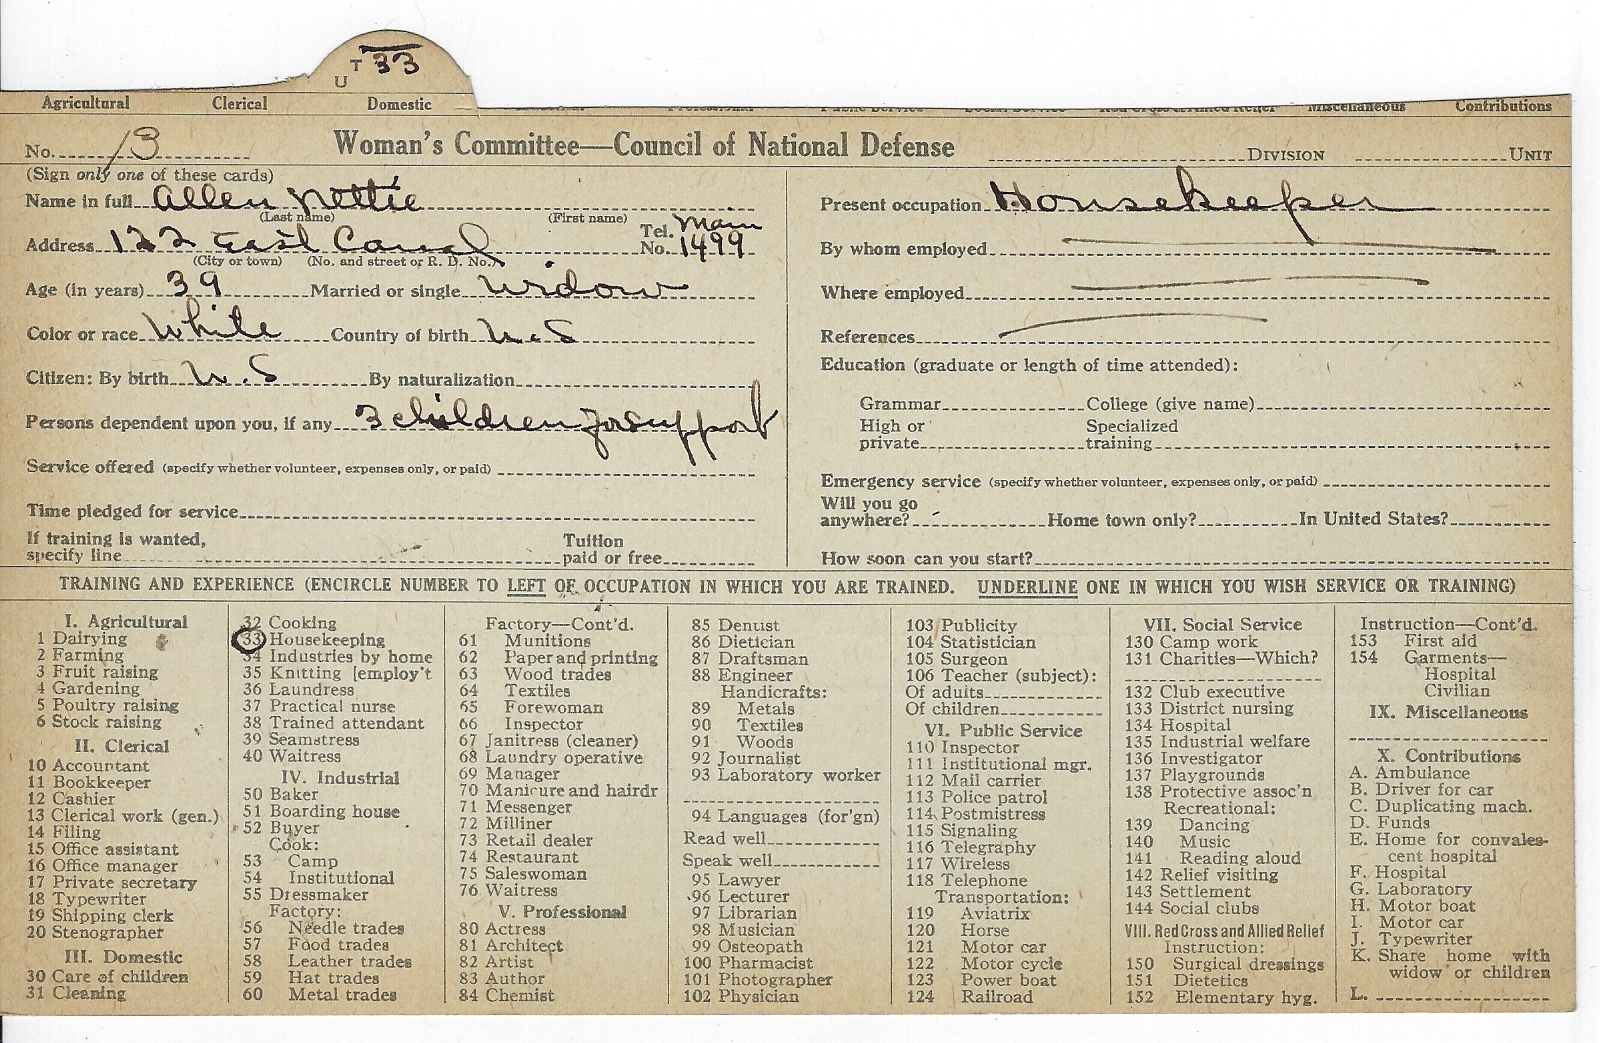 T 33
U
Agricultural Clerical Domestic Miscellaneous Contributions
No. 13 Woman's Committee—Council of National Defense DIVISION UNIT
(Sign only one of these cards)
Name in full Allen Nettie
(Last name) (First name)
Address 122 East Canal Tel. No. Main 1499
(City or town) (No. and street or R. D. No.)
Age (in years) 39 Married or single Widow
Color or race White Country of birth U.S
Citizen: By birth U.S By naturalization
Persons dependent upon you, if any 3 children for support
Service offered (specify whether volunteer, expenses only, or paid)
Time pledged for service
If training is wanted,
specify line Tuition paid or free
Present occupation Housekeeper
By whom employed
Where employed
References
Education (graduate or length of time attended):
Grammar College (give name)
High or private Specialized training
Emergency service (specify whether volunteer, expenses only, or paid)
Will you go anywhere? Home town only? In United States?
How soon can you start?
TRAINING AND EXPERIENCE (ENCIRCLE NUMBER TO LEFT OF OCCUPATION IN WHICH YOU ARE TRAINED. UNDERLINE ONE IN WHICH YOU WISH SERVICE OR TRAINING)
I. Agricultural
1 Dairying
2 Farming
3 Fruit raising
4 Gardening
5 Poultry raising
6 Stock raising
II. Clerical
10 Accountant
11 Bookkeeper
12 Cashier
13 Clerical work (gen.)
14 Filing
15 Office assistant
16 Office manager
17 Private secretary
18 Typewriter
19 Shipping clerk
20 Stenographer
III. Domestic
30 Care of children
31 Cleaning
32 Cooking
33 Housekeeping
34 Industries by home
35 Knitting [employ't
36 Laundress
37 Practical nurse
38 Trained attendant
39 Seamstress
40 Waitress
IV. Industrial
50 Baker
51 Boarding house
52 Buyer
Cook:
53 Camp
54 Institutional
55 Dressmaker
Factory:
56 Needle trades
57 Food trades
58 Leather trades
59 Hat trades
60 Metal trades
Factory—Cont'd.
61 Munitions
62 Paper and printing
63 Wood trades
64 Textiles
65 Forewoman
66 Inspector
67 Janitress (cleaner)
68 Laundry operative
69 Manager
70 Manicure and hairdr
71 Messenger
72 Milliner
73 Retail dealer
74 Restaurant
75 Saleswoman
76 Waitress
V. Professional
80 Actress
81 Architect
82 Artist
83 Author
84 Chemist
85 Dentist
86 Dietician
87 Draftsman
88 Engineer
Handicrafts:
89 Metals
90 Textiles
91 Woods
92 Journalist
93 Laboratory worker
94 Languages (for'gn)
Read well
Speak well
95 Lawyer
96 Lecturer
97 Librarian
98 Musician
99 Osteopath
100 Pharmacist
101 Photographer
102 Physician
103 Publicity
104 Statistician
105 Surgeon
106 Teacher (subject):
Of adults
Of children
VI. Public Service
110 Inspector
111 Institutional mgr.
112 Mail carrier
113 Police patrol
114 Postmistress
115 Signaling
116 Telegraphy
117 Wireless
118 Telephone
Transportation:
119 Aviatrix
120 Horse
121 Motor car
122 Motor cycle
123 Power boat
124 Railroad
VII. Social Service
130 Camp work
131 Charities—Which?
132 Club executive
133 District nursing
134 Hospital
135 Industrial welfare
136 Investigator
137 Playgrounds
138 Protective assoc'n
Recreational:
139 Dancing
140 Music
141 Reading aloud
142 Relief visiting
143 Settlement
144 Social clubs
VIII. Red Cross and Allied Relief
Instruction:
150 Surgical dressings
151 Dietetics
152 Elementary hyg.
Instruction—Cont'd.
153 First aid
154 Garments—
Hospital
Civilian
IX. Miscellaneous
X. Contributions
A. Ambulance
B. Driver for car
C. Duplicating mach.
D. Funds
E. Home for convalescent hospital
F. Hospital
G. Laboratory
H. Motor boat
I. Motor car
J. Typewriter
K. Share home with
widow or children
L.